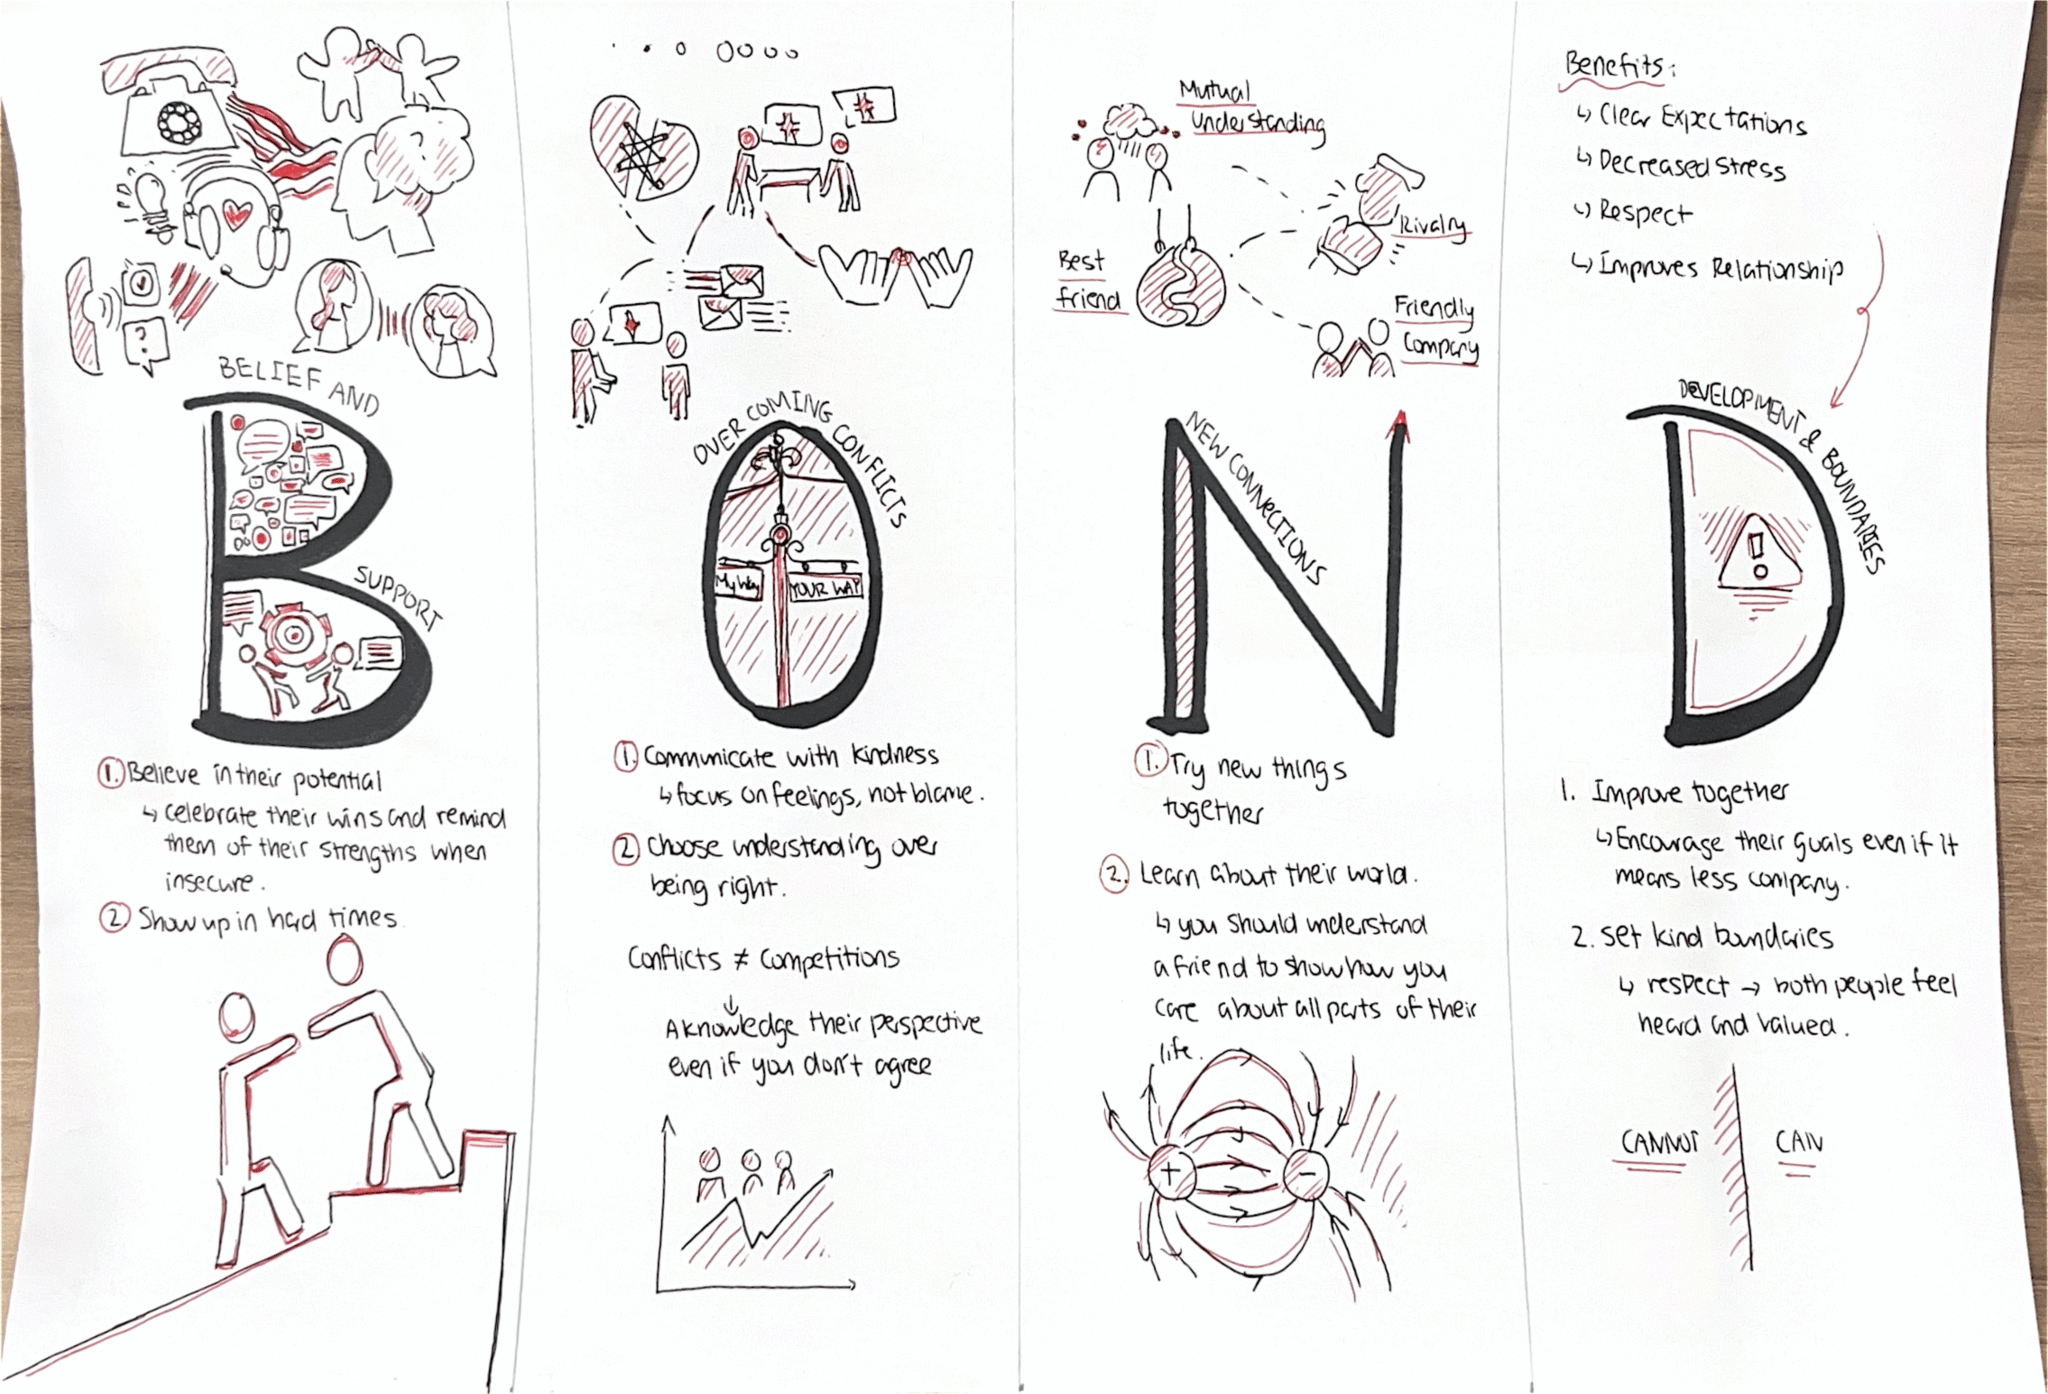 BELIEF AND
SUPPORT
?
1. Believe in their potential
↳ celebrate their wins and remind
them of their strengths when
insecure.
2 Show up in hard times.
OVERCOMING CONFLICTS
My Way
YOUR WAY
1. Communicate with kindness
↳ focus on feelings, not blame.
2 Choose understanding over
being right.
Conflicts ≠ Competitions
↓
Aknowledge their perspective
even if you don't agree
Mutual
Understanding
Rivalry
Best
friend
Friendly
Company
NEW CONNECTIONS
1. Try new things
together
2. Learn about their world.
↳ you should understand
a friend to show how you
care about all parts of their
life.
+
-
Benefits:
↳ Clear Expectations
↳ Decreased Stress
↳ Respect
↳ Improves Relationship
DEVELOPMENT & BOUNDARIES
!
1. Improve together
↳ Encourage their goals even if it
means less company.
2. Set kind boundaries
↳ respect → both people feel
heard and valued.
CANNOT
CAN